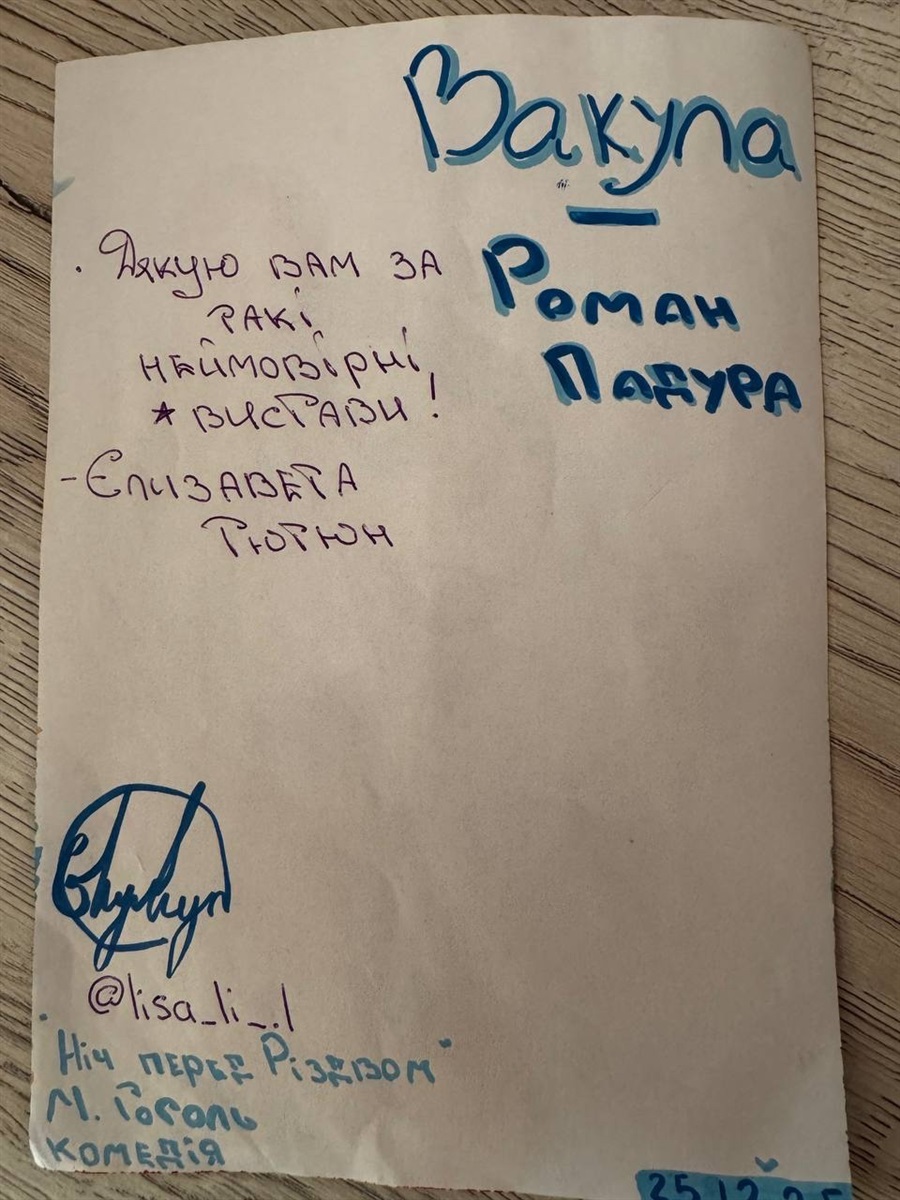 Вакула
—
Роман
Падура
· Дякую вам за
такі
неймовірні
* вистави!
- Єлизавета
Тютюн
@lisa_li_.l
"Ніч перед Різдвом"
М. Гоголь
комедія
25.12